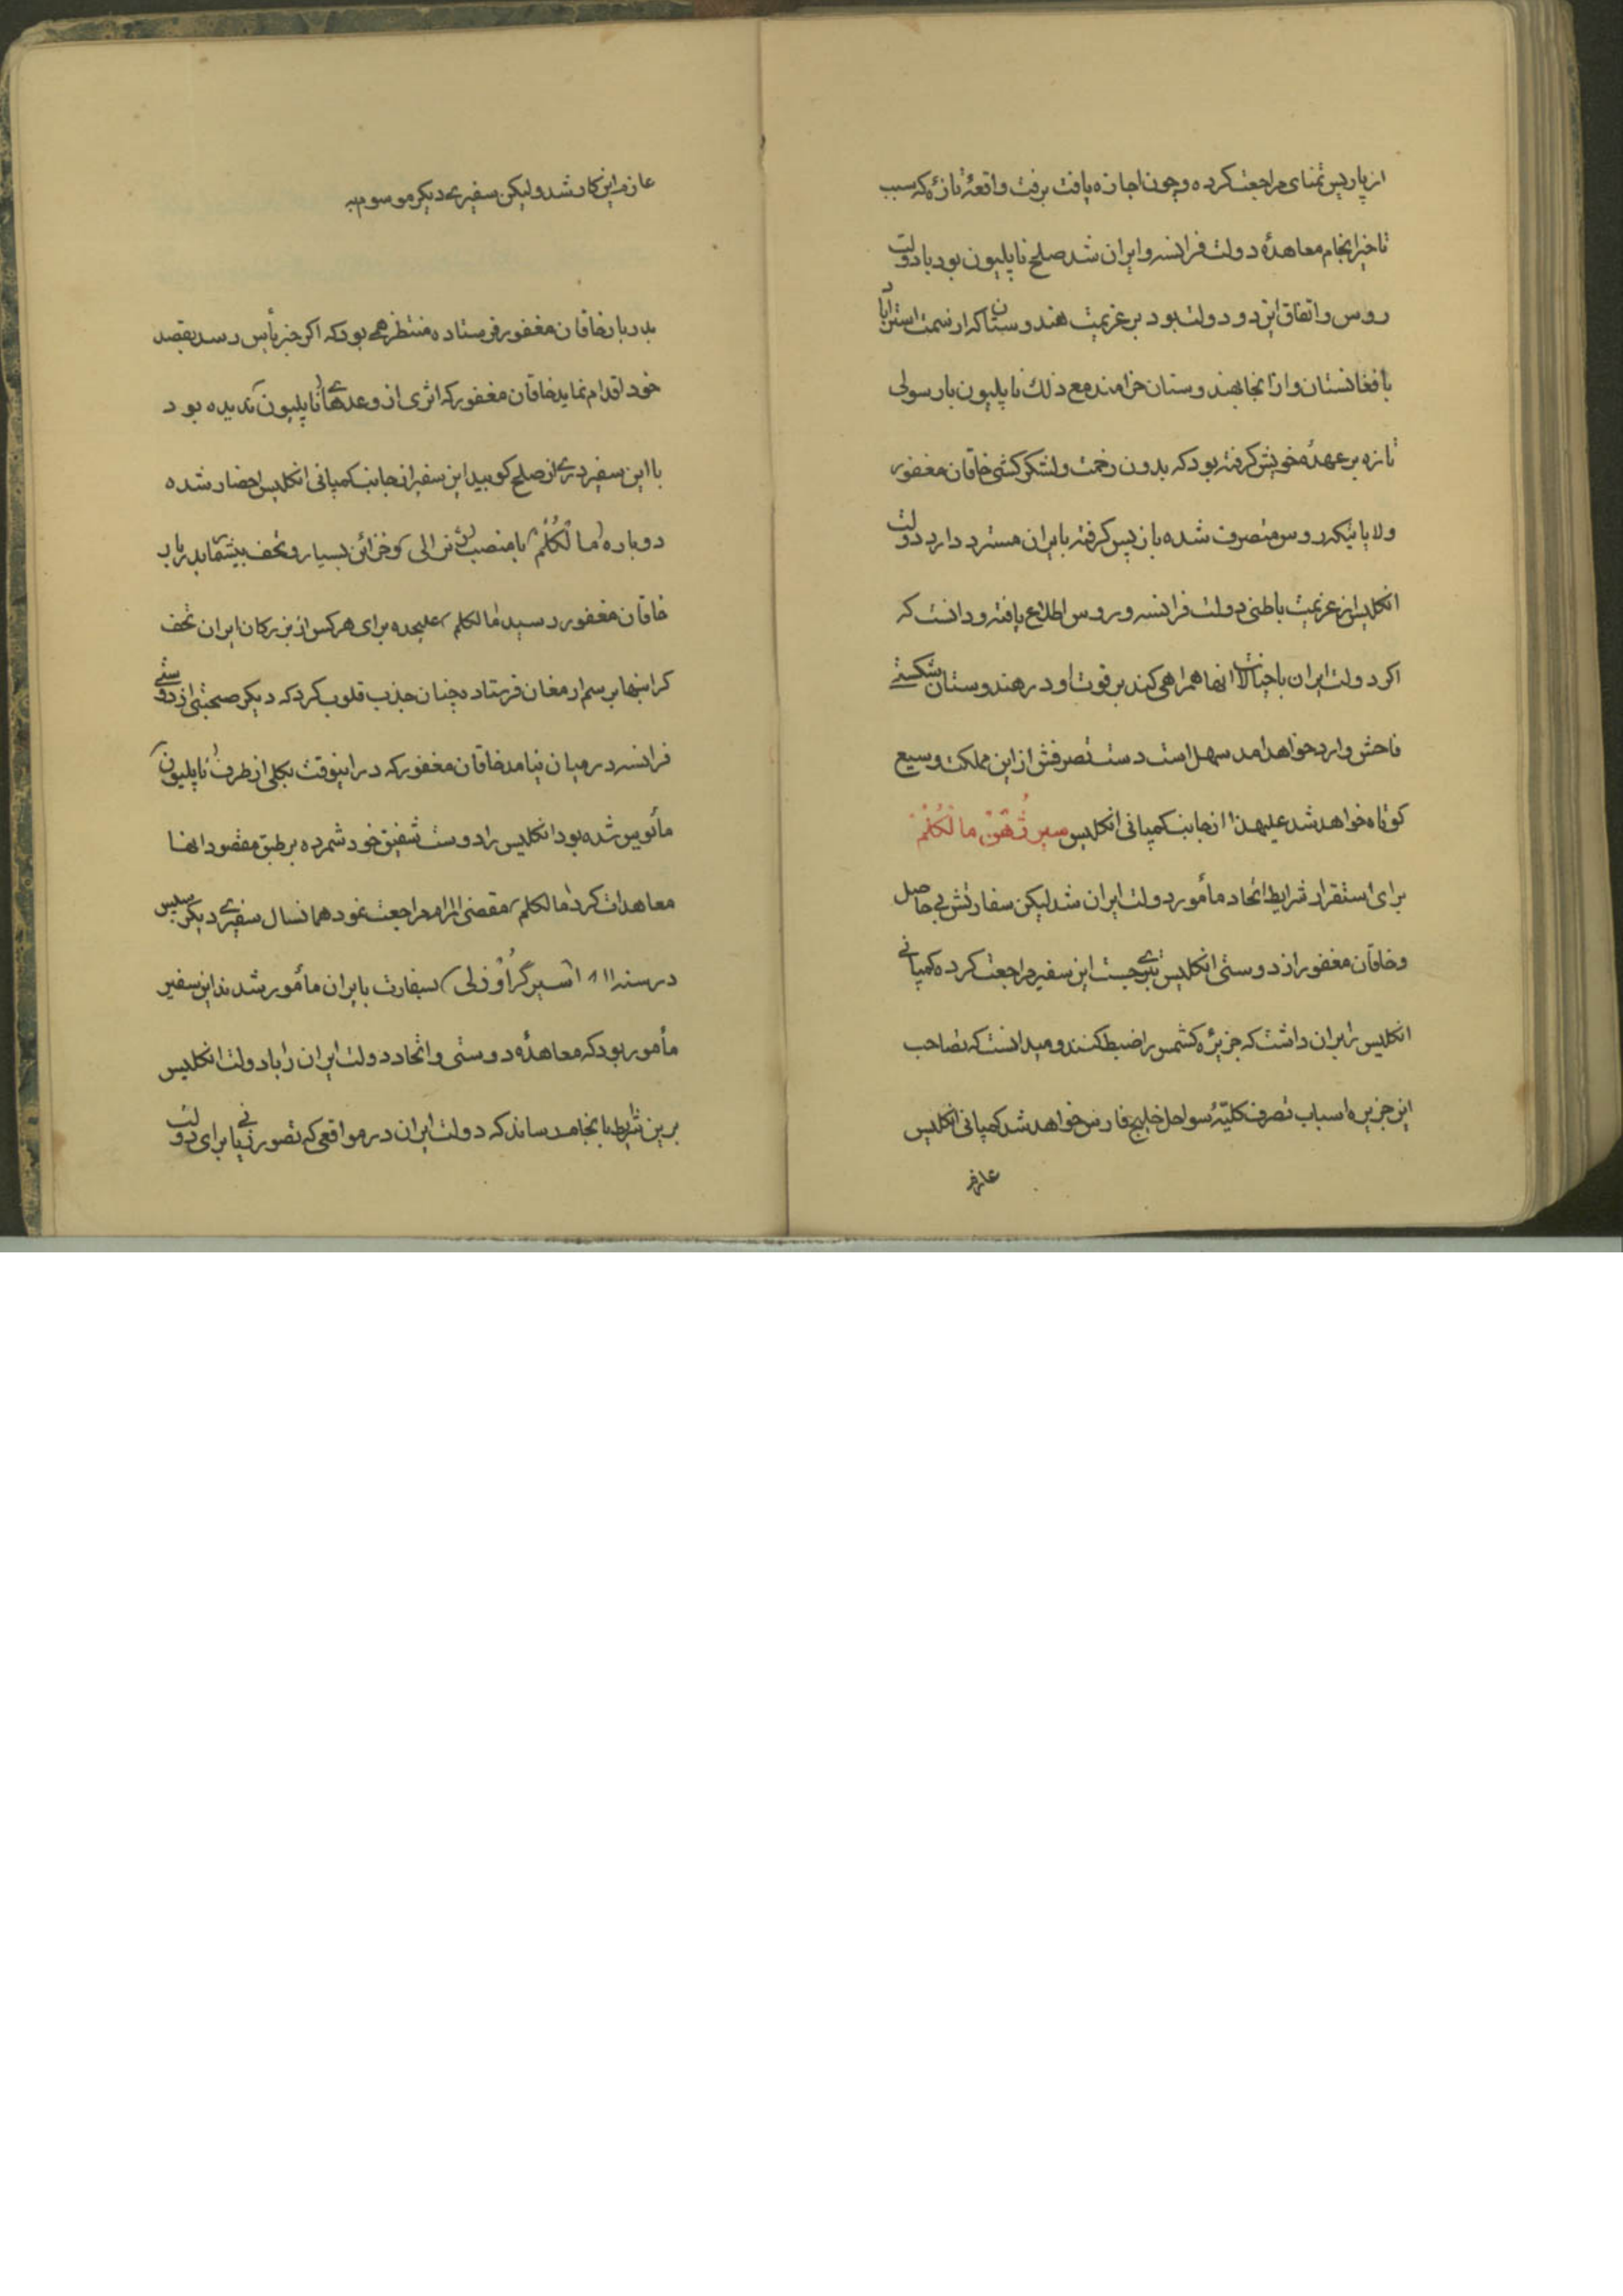 از پاریس تمنای مراجعت کرده و چون اجازه یافت برفت واقعهٔ تازهٔ که سبب
تاخیر انجام معاهدهٔ دولت فرانسه و ایران شد صلح ناپلیون بود با دولت
روس و اتفاق این دو دولت بود بر عزیمت هندوستان که از سمت استراباد
بافغانستان و از انجا بهندوستان خرامند مع ذلک ناپلیون با رسولی
تازه بر عهدهٔ خویش گرفته بود که بدون زحمت و لشکر کشی خاقان مغفور
ولایاتیکه روس متصرف شده باز پس گرفته بایران مسترد دارد دولت
انکلیس از عزیمت باطنی دولت فرانسه و روس اطلاع یافته و دانست که
اکر دولت ایران با خیالات انها همراهی کند بر قوت او در هندوستان شکستی
فاحش وارد خواهد امد سهل است دست تصرفش از این مملکت وسیع
کوتاه خواهد شد علیهذا از جانب کمپانی انکلیس سیر ژهن مالکلم
برای استقرار شرایط اتحاد مأمور دولت ایران شد لیکن سفارتش بی حاصل
و خاقان مغفور از دوستی انکلیس تبری جست این سفیر مراجعت کرده کمپانی
انکلیس را بران داشت که جزیرهٔ کشمس را ضبط کنند و میدانست که تصاحب
این جزیره اسباب تصرف کلیّهٔ سواحل خلیج فارس خواهد شد کمپانی انکلیس
عازم
عازم این کار شد ولیکن سفیری دیکر موسوم به
بدربار خاقان مغفور فرستاده منتظر همی بود که اکر خبر یأس رسد بقصد
خود اقدام نماید خاقان مغفور که اثری از وعدهای ناپلیون ندیده بود
با این سفیر دری از صلح کوبید این سفیر از جانب کمپانی انکلیس احضار شده
دوباره مالکلم با منصب ژنرالی و خزائن بسیار و تحف بیشمار بدربار
خاقان مغفور رسید مالکلم علیحده برای هر کس از بزرکان ایران تحف
کرانبها برسم ارمغان فرستاده چنان جذب قلوب کرد که دیکر صحبتی از دوستی
فرانسه در میان نیامد خاقان مغفور که در اینوقت بکلی از طرف ناپلیون
مأیوس شده بود انکلیس را دوست شفیق خود شمرده بر طبق مقصود انها
معاهدات کرد مالکلم مقضی المرام مراجعت نمود همانسال سفیری دیکر
در سنه ۱۸۱۱ سیر گراوزلی بسفارت بایران مأمور شدند این سفیر
مأمور بود که معاهدهٔ دوستی و اتحاد دولت ایران را با دولت انکلیس
برین شرایط بانجام رساند که دولت ایران در مواقعی که تصور زیانی برای دولت